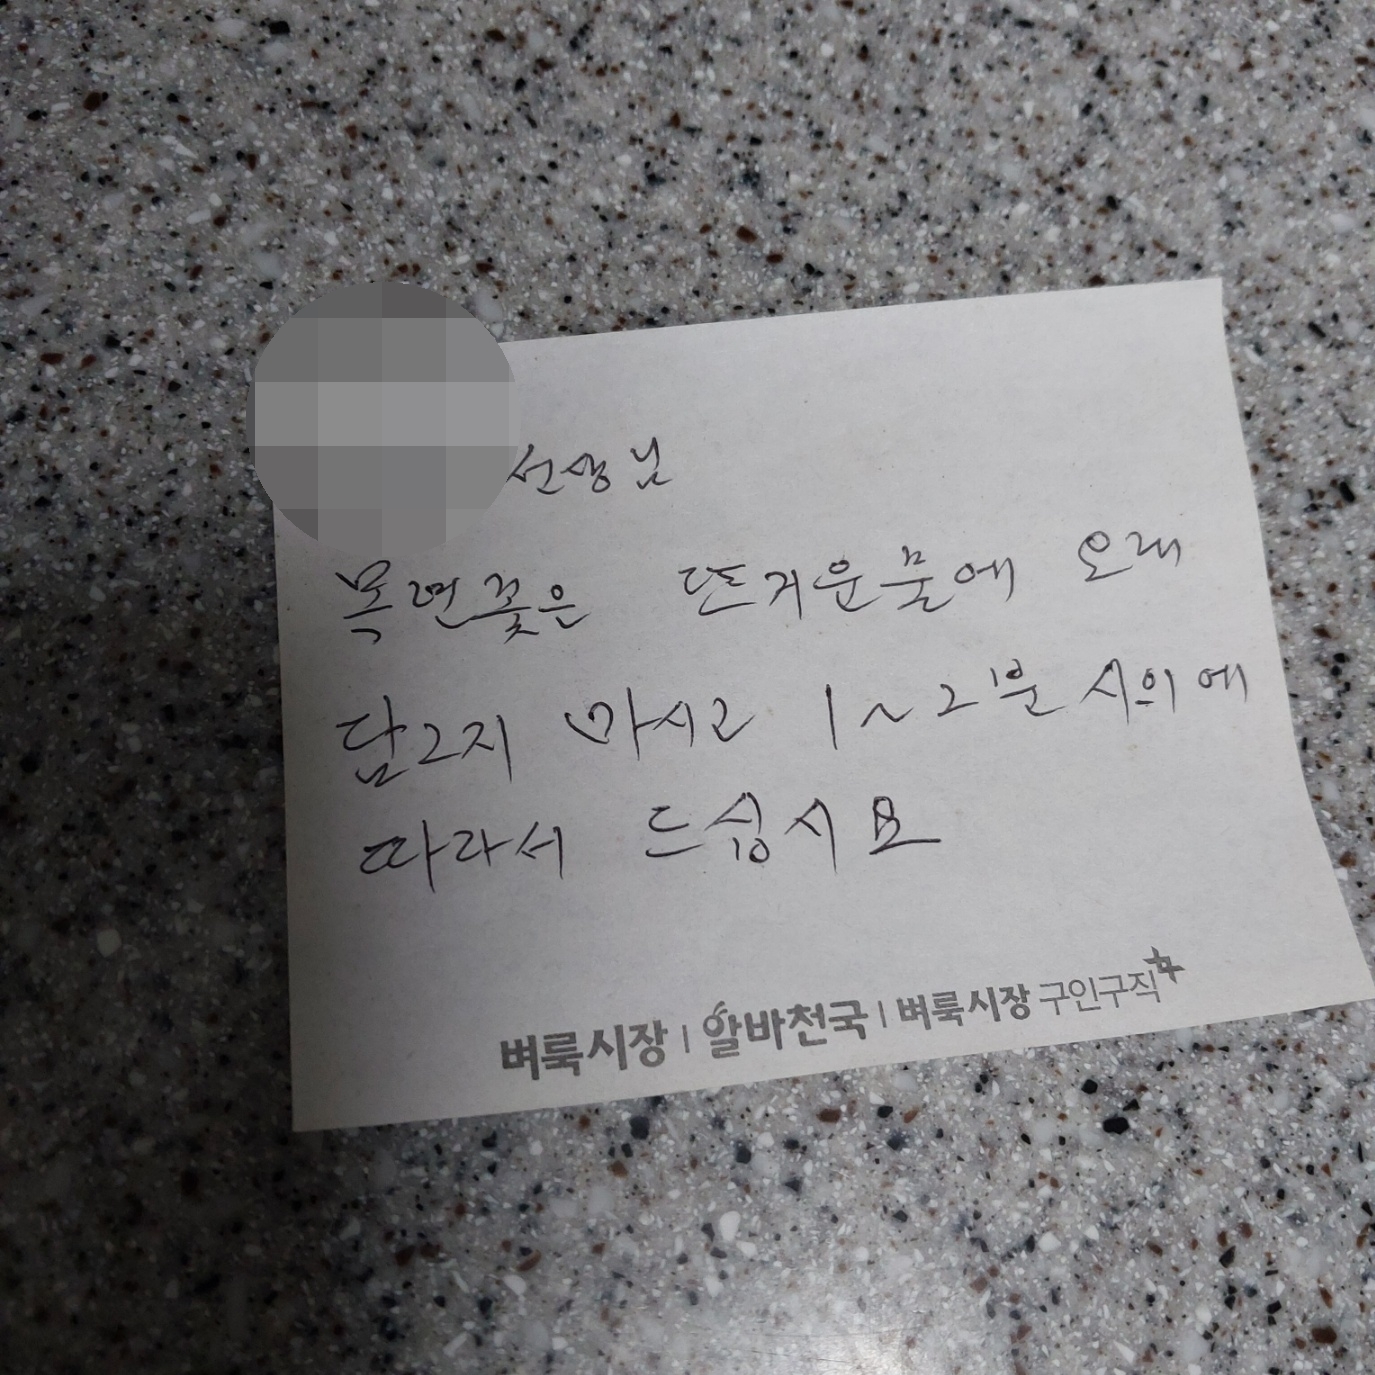 선생님
목련꽃은 뜨거운물에 오래
담그지 마시고 1~2분 사이에
따라서 드십시요
벼룩시장 | 알바천국 | 벼룩시장 구인구직